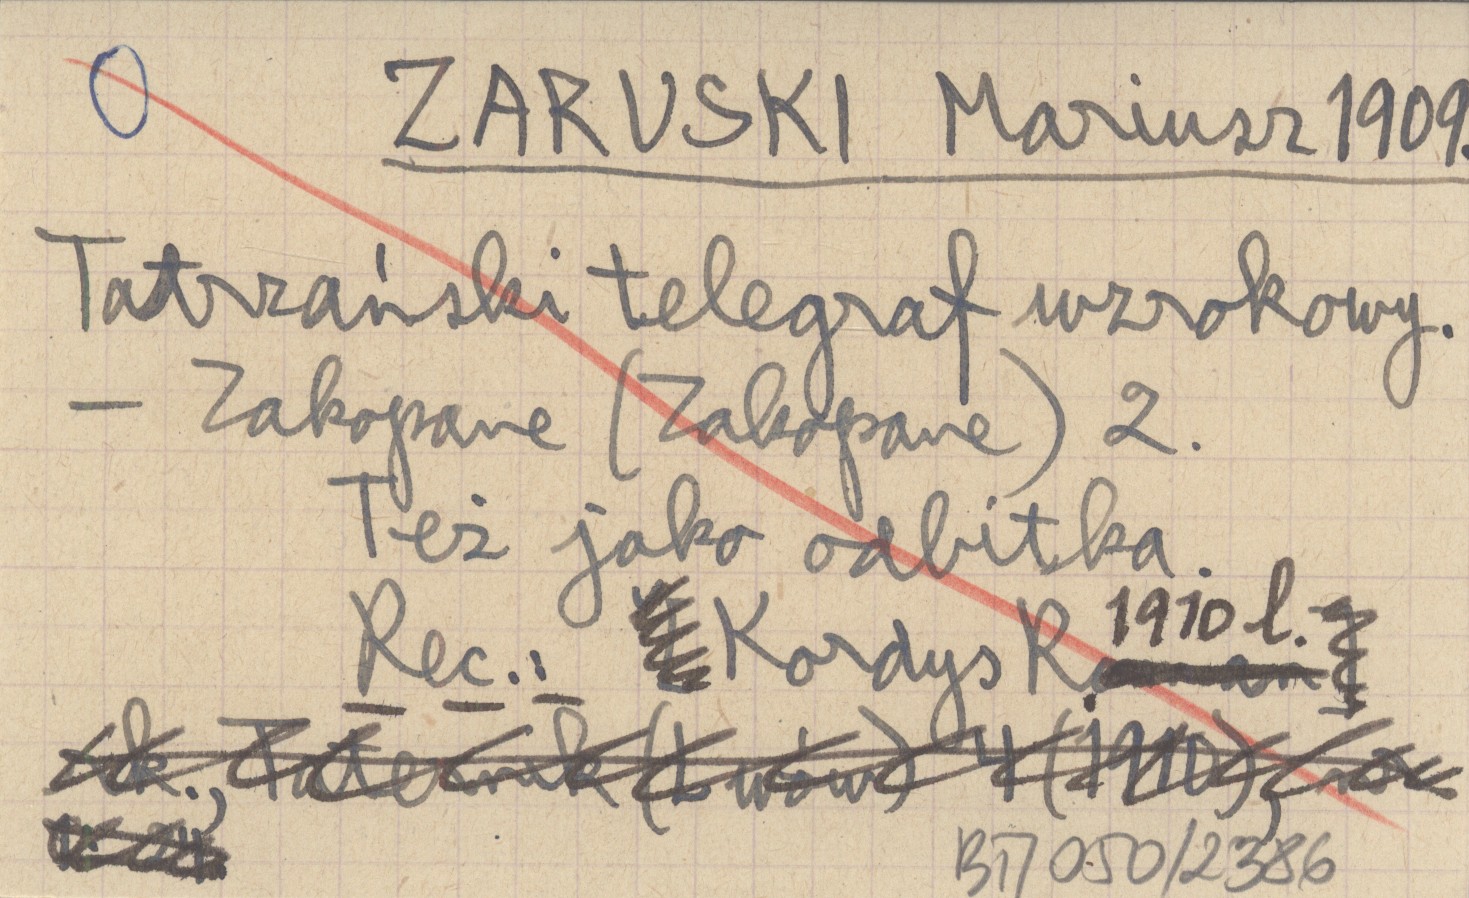 ZARUSKI Mariusz 1909.
Tatrzański telegraf wzrokowy.
— Zakopane (Zakopane) 2.
Też jako odbitka.
1910 l.
Rec.: Kordys R.
zk., Taternik (Lwów) 4 (1910), nr
BT/050/2386